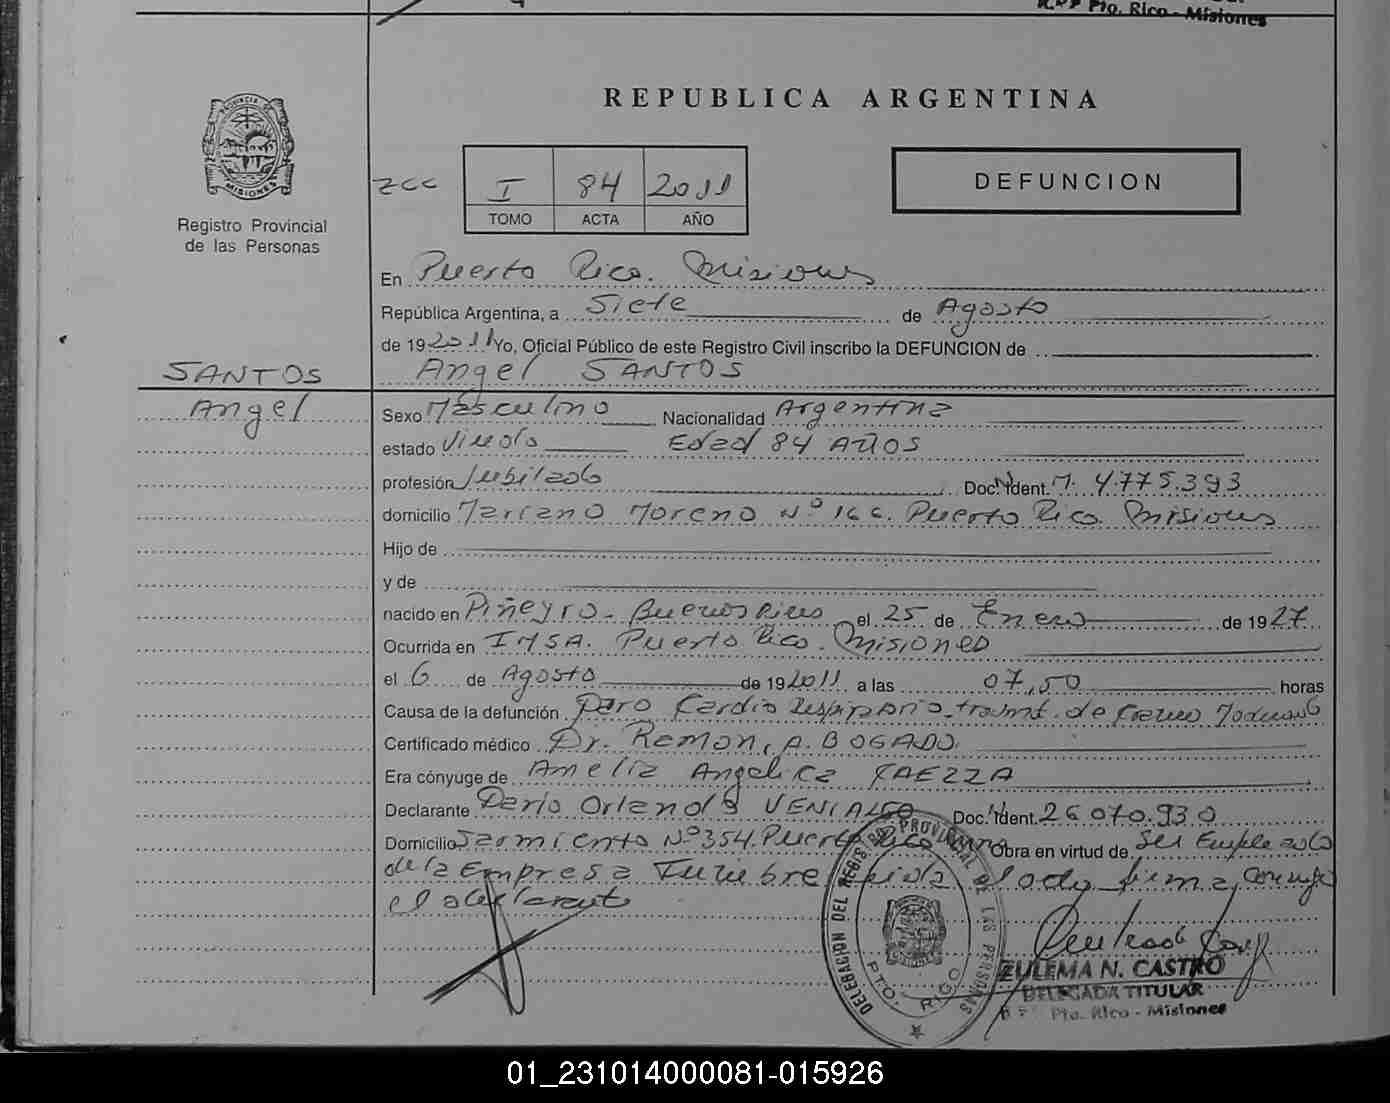 Pto. Rico - Misiones
REPUBLICA ARGENTINA
PROVINCIA DE
MISIONES
Registro Provincial
de las Personas
zcc I 84 2011
TOMO ACTA AÑO
DEFUNCION
En Puerto Rico. Misiones
República Argentina, a Siete de Agosto
de 19 2011 Yo, Oficial Público de este Registro Civil inscribo la DEFUNCION de
SANTOS
Angel SANTOS
Angel
Sexo Masculino Nacionalidad Argentina
estado Viudo Edad 84 AÑOS
profesión Jubilado Doc. Ident. M. 4.775.393
domicilio Mariano Moreno Nº 166. Puerto Rico. Misiones
Hijo de
y de
nacido en Piñeyro - Buenos Aires el 25 de Enero de 19 27
Ocurrida en IMSA. Puerto Rico. Misiones
el 6 de Agosto de 19 2011 a las 07,50 horas
Causa de la defunción Paro Cardio Respiratorio - traumt. de Craneo Moderado
Certificado médico Dr. Ramon, A. BOGADO.
Era cónyuge de Amelia Angelica
Declarante Dario Orlando VENIALGO Doc. Ident. 26 070.930
Domicilio Sarmiento Nº 354. Puerto Rico Obra en virtud de Ser Empleado
de la Empresa Funebre leida firma, conmigo
el declarante
DELEGACION DEL REGISTRO PROVINCIAL DE LAS PERSONAS
PTO. RICO
ZULEMA N. CASTRO
DELEGADA TITULAR
Pto. Rico - Misiones
01_231014000081-015926